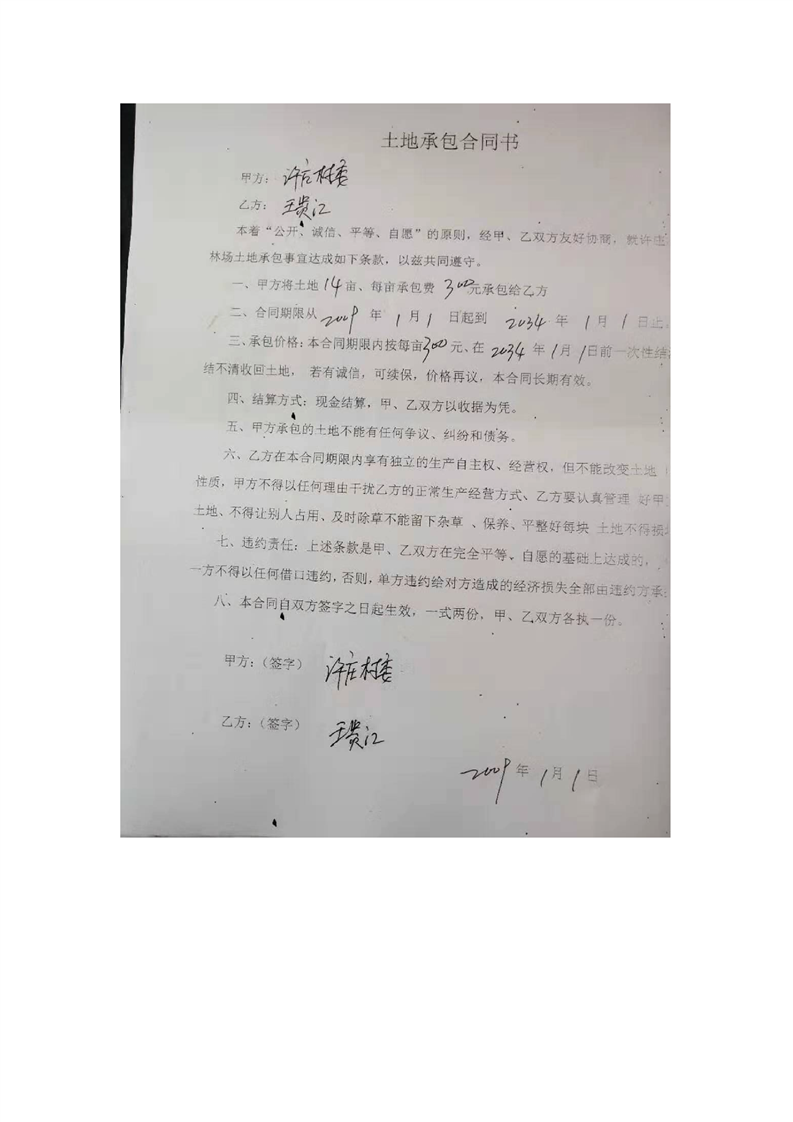 土地承包合同书
甲方：许庄村委
乙方：王贵江
本着“公开、诚信、平等、自愿”的原则，经甲、乙双方友好协商，就许庄
林场土地承包事宜达成如下条款，以兹共同遵守。
一、甲方将土地14亩、每亩承包费300元承包给乙方
二、合同期限从2009年1月1日起到2034年1月1日止
三、承包价格：本合同期限内按每亩300元、在2034年1月1日前一次性结
结不清收回土地， 若有诚信，可续保，价格再议，本合同长期有效。
四、结算方式：现金结算，甲、乙双方以收据为凭。
五、甲方承包的土地不能有任何争议、纠纷和债务。
六、乙方在本合同期限内享有独立的生产自主权、经营权，但不能改变土地
性质，甲方不得以任何理由干扰乙方的正常生产经营方式、乙方要认真管理 好甲
土地、不得让别人占用、及时除草不能留下杂草 、保养、平整好每块 土地不得损
七、违约责任：上述条款是甲、乙双方在完全平等、自愿的基础上达成的，
一方不得以任何借口违约，否则，单方违约给对方造成的经济损失全部由违约方承
八、本合同自双方签字之日起生效，一式两份，甲、乙双方各执一份。
甲方：（签字） 许庄村委
乙方：（签字） 王贵江
2009年1月1日